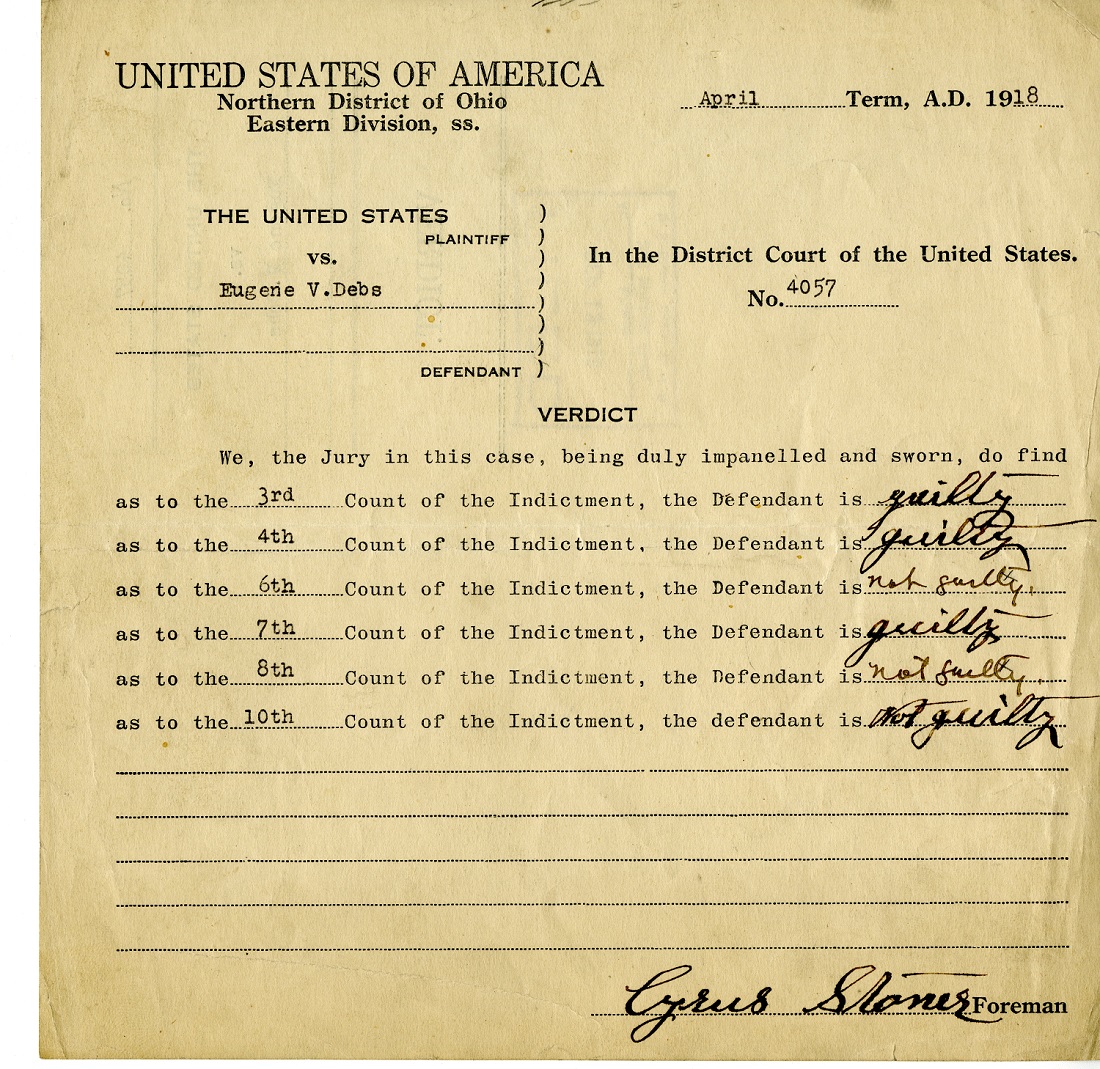 UNITED STATES OF AMERICA
Northern District of Ohio
Eastern Division, ss.
April Term, A.D. 1918
THE UNITED STATES
PLAINTIFF
vs.
Eugene V.Debs
DEFENDANT
In the District Court of the United States.
No. 4057
VERDICT
We, the Jury in this case, being duly impanelled and sworn, do find
as to the 3rd Count of the Indictment, the Defendant is guilty
as to the 4th Count of the Indictment, the Defendant is guilty
as to the 6th Count of the Indictment, the Defendant is not guilty.
as to the 7th Count of the Indictment, the Defendant is guilty
as to the 8th Count of the Indictment, the Defendant is not guilty.
as to the 10th Count of the Indictment, the defendant is Not guilty
Cyrus Stoner Foreman